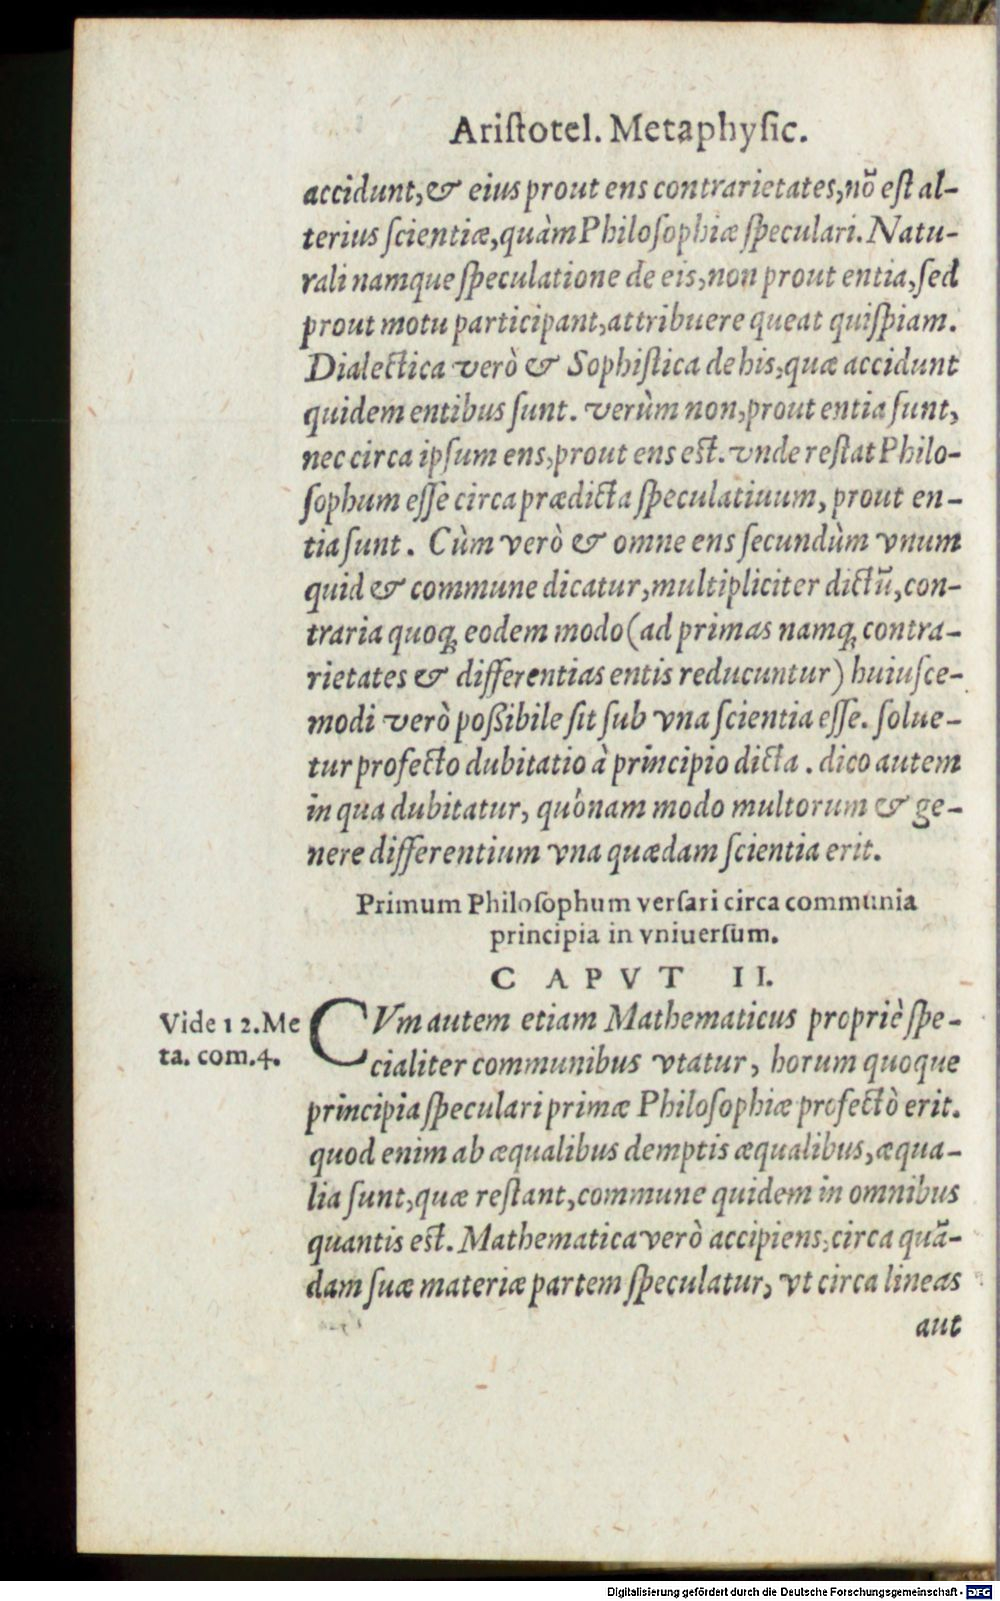 Aristotel. Metaphysic.
accidunt, & eius prout ens contrarietates, nõ est al-
terius scientiæ, quàm Philosophiæ speculari. Natu-
rali namque speculatione de eis, non prout entia, sed
prout motu participant, attribuere queat quispiam.
Dialectica verò & Sophistica de his, quæ accidunt
quidem entibus sunt. verùm non, prout entia sunt,
nec circa ipsum ens, prout ens est. vnde restat Philo-
sophum esse circa prædicta speculatiuum, prout en-
tia sunt. Cùm verò & omne ens secundùm vnum
quid & commune dicatur, multipliciter dictũ, con-
traria quoq; eodem modo (ad primas namq; contra-
rietates & differentias entis reducuntur) huiusce-
modi verò poßibile sit sub vna scientia esse. solue-
tur profecto dubitatio à principio dicta. dico autem
in qua dubitatur, quònam modo multorum & ge-
nere differentium vna quædam scientia erit.
Primum Philosophum versari circa communia
principia in vniuersum.
CAPVT II.
Vide 12. Me
ta. com. 4.
CVm autem etiam Mathematicus propriè spe-
cialiter communibus vtatur, horum quoque
principia speculari primæ Philosophiæ profectò erit.
quod enim ab æqualibus demptis æqualibus, æqua-
lia sunt, quæ restant, commune quidem in omnibus
quantis est. Mathematica verò accipiens, circa quã-
dam suæ materiæ partem speculatur, vt circa lineas
aut
Digitalisierung gefördert durch die Deutsche Forschungsgemeinschaft - DFG